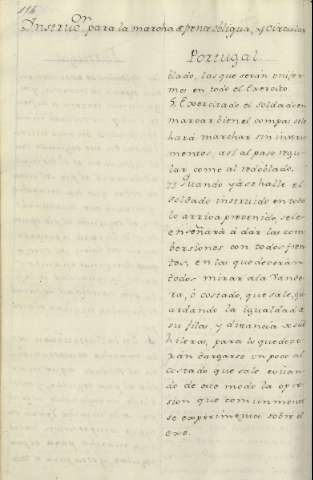 116
Instrucon para la marcha de frente obligua, y Circular
Portugal.
blado, las que serán unifor-
mes en todo el Exercito.
5. Exercitado el soldado en
marcar bien el compas se le
hará marchar sin instru-
mentos, así al paso regu-
lar, como al redoblado.
Quando yá se halle el
soldado instruido en todo
lo arriva prevenido, se le
enseñará á dar las com-
bersiones con todos fren-
tes, en las que deverán
todos mirar ala vande-
ra, ó costado, que sale, gu-
ardando la igualdad de
su fila, y distancia de sus
hileras, para lo que deve-
rán cargarse un poco al
costado que sale evitan-
do de este modo la opre-
sion que comunmente
se experimenta sobre el
exe.